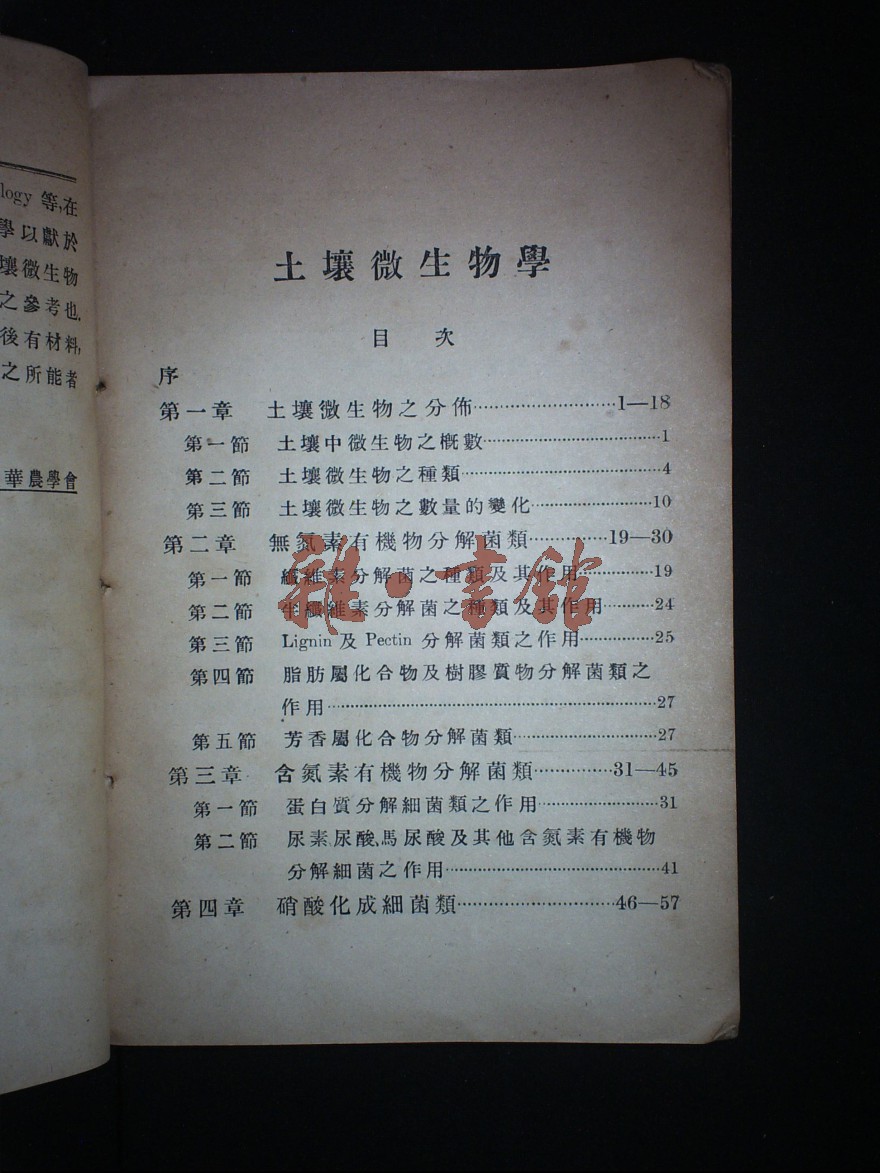 logy 等,在
學以獻於
壤微生物
之參考也,
後有材料,
之所能者
華農學會
土壤微生物學
目 次
序
第一章 土壤微生物之分佈…………………………1—18
第一節 土壤中微生物之概數…………………………1
第二節 土壤微生物之種類…………………………4
第三節 土壤微生物之數量的變化…………………………10
第二章 無氮素有機物分解菌類…………………………19—30
第一節 纖維素分解菌之種類及其作用…………………………19
第二節 半纖維素分解菌之種類及其作用…………………………24
第三節 Lignin 及 Pectin 分解菌類之作用…………………………25
第四節 脂肪屬化合物及樹膠質物分解菌類之
作用…………………………27
第五節 芳香屬化合物分解菌類…………………………27
第三章 含氮素有機物分解菌類…………………………31—45
第一節 蛋白質分解細菌類之作用…………………………31
第二節 尿素、尿酸、馬尿酸及其他含氮素有機物
分解細菌之作用…………………………41
第四章 硝酸化成細菌類…………………………46—57
雜·書館